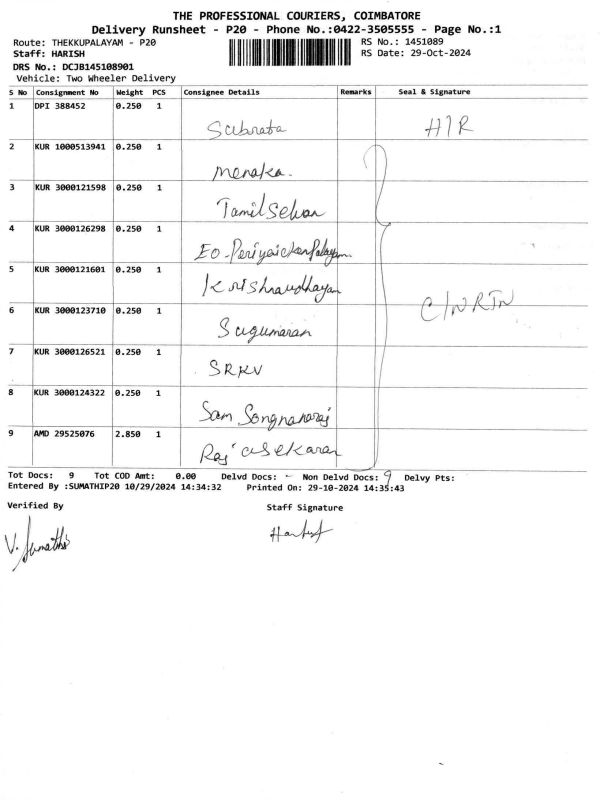 THE PROFESSIONAL COURIERS, COIMBATORE
Delivery Runsheet - P20 - Phone No.:0422-3505555 - Page No.:1
Route: THEKKUPALAYAM - P20 RS No.: 1451089
Staff: HARISH RS Date: 29-Oct-2024
DRS No.: DCJB145108901
Vehicle: Two Wheeler Delivery
S No Consignment No Weight PCS Consignee Details Remarks Seal & Signature
1 DPI 388452 0.250 1
Subrata H/R
2 KUR 1000513941 0.250 1
Menaka.
3 KUR 3000121598 0.250 1
Tamilselvan
4 KUR 3000126298 0.250 1
EO-Periyaickenpalayam
5 KUR 3000121601 0.250 1
Krishnaudhayan
C/NRTN
6 KUR 3000123710 0.250 1
Sugumaran
7 KUR 3000126521 0.250 1
SRKV
8 KUR 3000124322 0.250 1
Sam
9 AMD 29525076 2.850 1
Rajasekaran
Tot Docs: 9 Tot COD Amt: 0.00 Delvd Docs: - Non Delvd Docs: 9 Delvy Pts:
Entered By :SUMATHIP20 10/29/2024 14:34:32 Printed On: 29-10-2024 14:35:43
Verified By Staff Signature
V. Sumathi